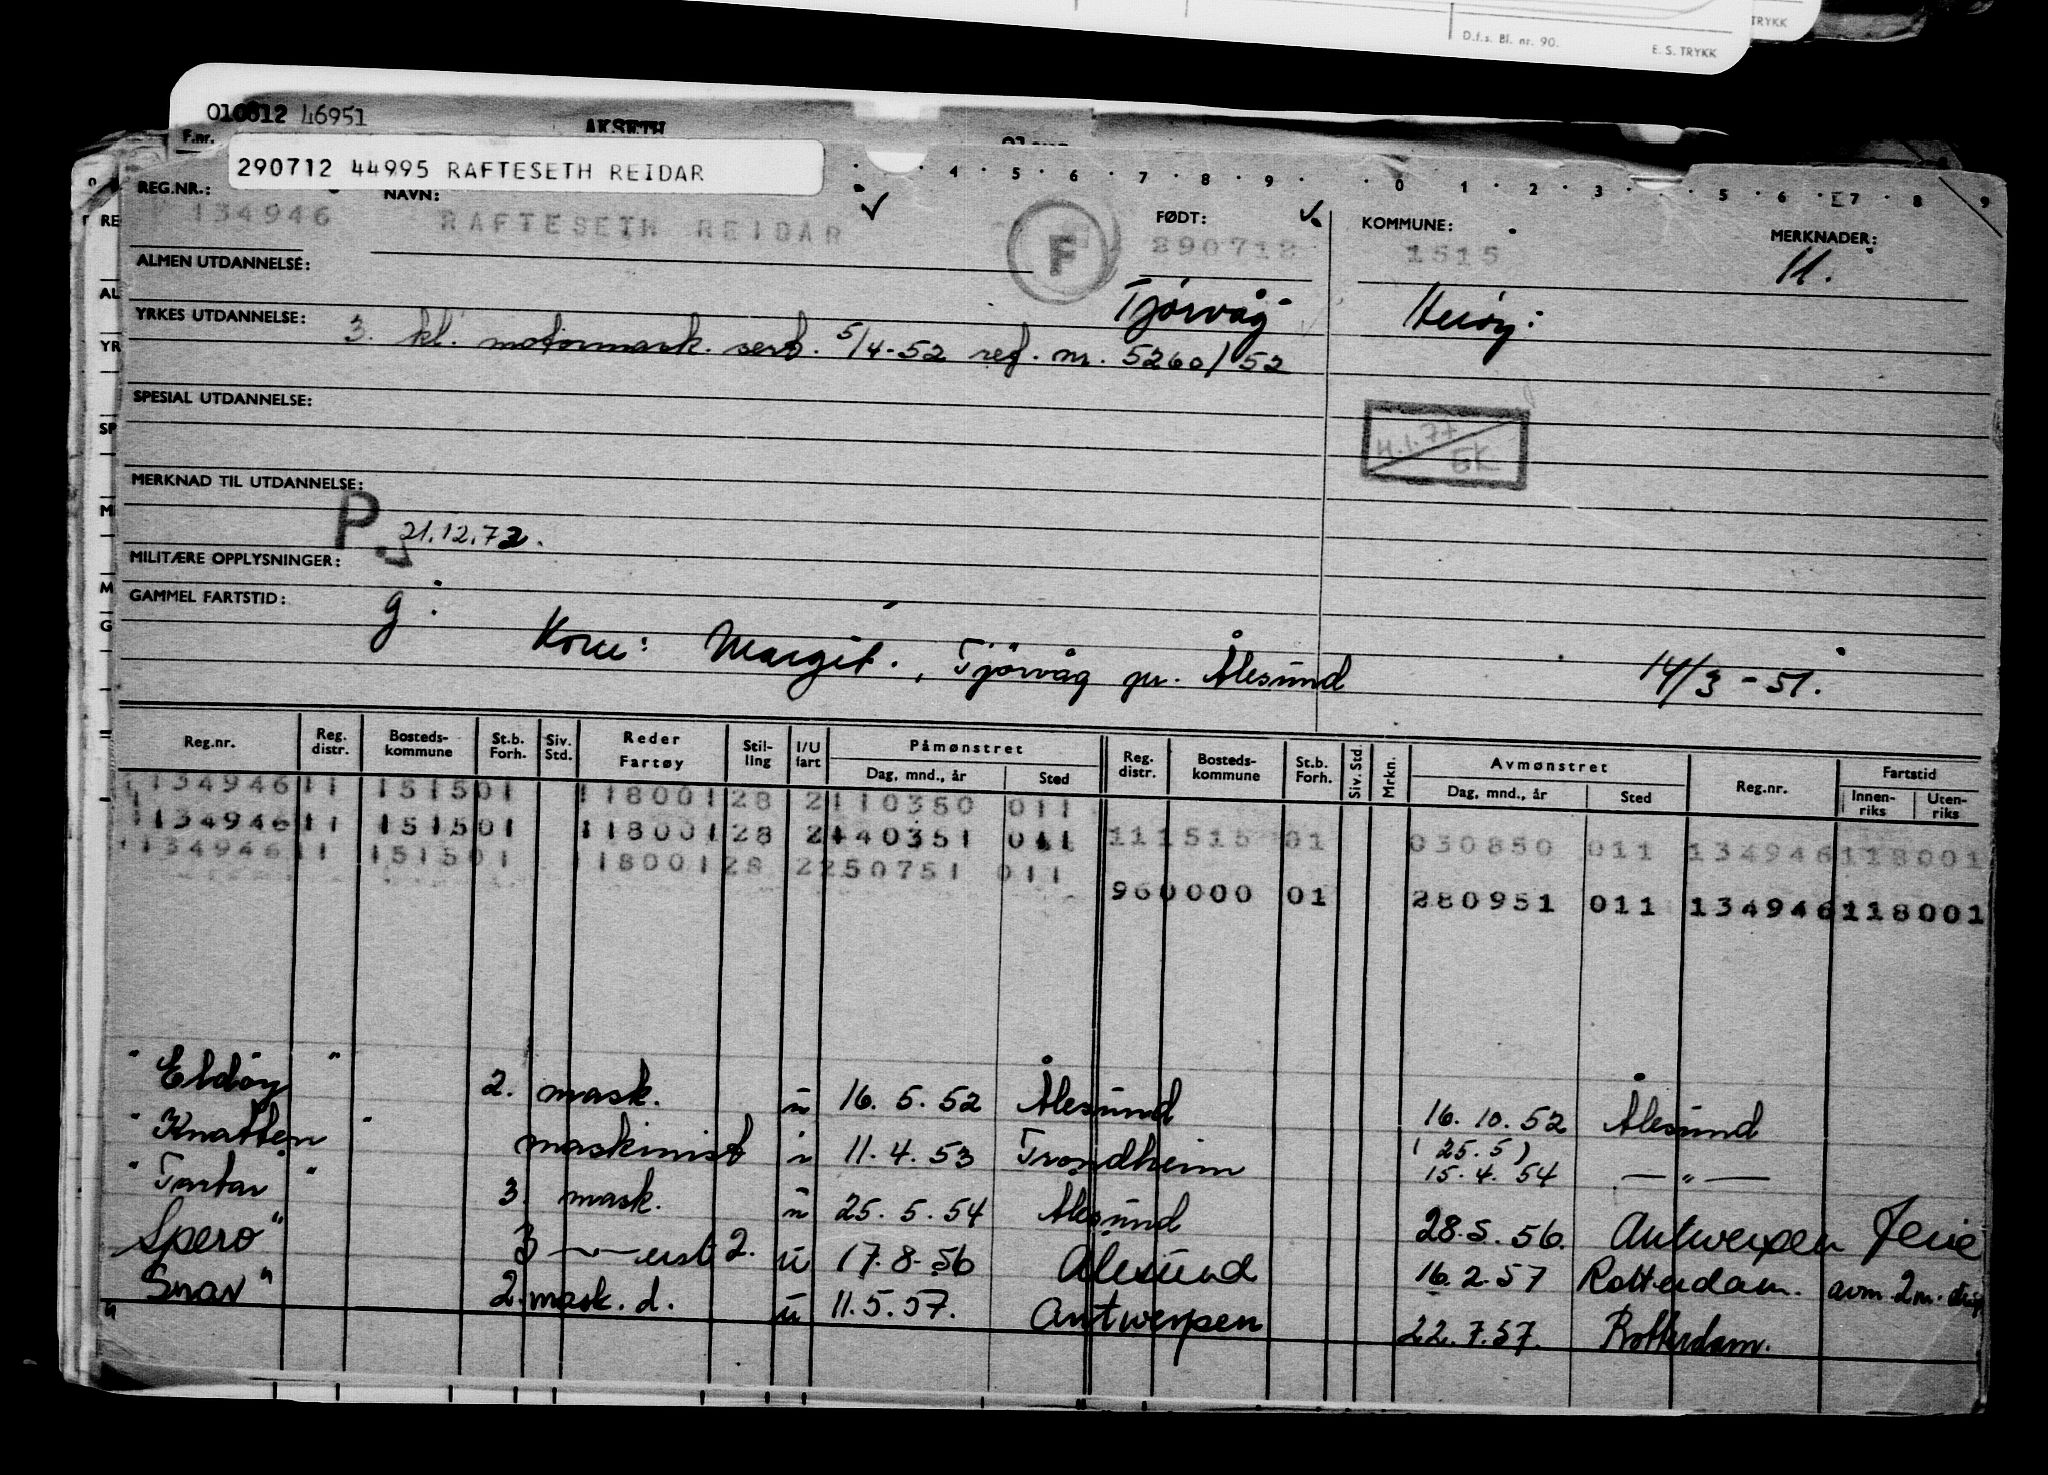 TRYKK
D.f.s. Bl. nr. 90. E. S. TRYKK
010812 46951 AKSETH
F.nr.
290712 44995 RAFTESETH REIDAR
4 5 6 7 8 9 0 1 2 3 5 6 7 8 9
REG.NR.: NAVN: FØDT: KOMMUNE: MERKNADER:
134946 RAFTESETH REIDAR F 290712 1515 M.
ALMEN UTDANNELSE:
Tjørvåg Herøy:
YRKES UTDANNELSE: 3. kl. motormask. sert. 5/4-52 ref. nr. 5260/52
SPESIAL UTDANNELSE:
MERKNAD TIL UTDANNELSE:
P. 21.12.72.
MILITÆRE OPPLYSNINGER:
GAMMEL FARTSTID: g.
Kone: Margit., Tjørvåg pr. Ålesund 14/3-51.
Reg.nr. Reg. distr. Bosteds-kommune St.b. Forh. Siv. Std. Reder Fartøy Stil-ling I/U fart Påmønstret Dag, mnd., år Sted Reg. distr. Bosteds-kommune St.b. Forh. Siv. Std. Mrkn. Avmønstret Dag, mnd., år Sted Reg.nr. Fartstid Innen-riks Uten-riks
134946 11 1515 01 118001 28 2 110350 011
134946 11 1515 01 118001 28 2 140351 011 11 1515 01 030850 011 134946 118001
134946 11 1515 01 118001 28 2 250751 011
96 0000 01 280951 011 134946 118001
"Eldøy" 2. mask. u 16. 5. 52 Ålesund 16. 10. 52 Ålesund
"Knatten" maskinist i 11. 4. 53 Trondheim (25.5) 15. 4. 54 — " —
"Tartar" 3. mask. u 25. 5. 54 Ålesund 28. 5. 56. Antwerpen Ferie
Spero" 3 —"— 2. u 17. 8. 56 Ålesund 16. 2. 57 Rotterdam. avm. 2m.
Snar" 2. mask. d. u 11. 5. 57. Antwerpen 22. 7. 57. Rotterdam.